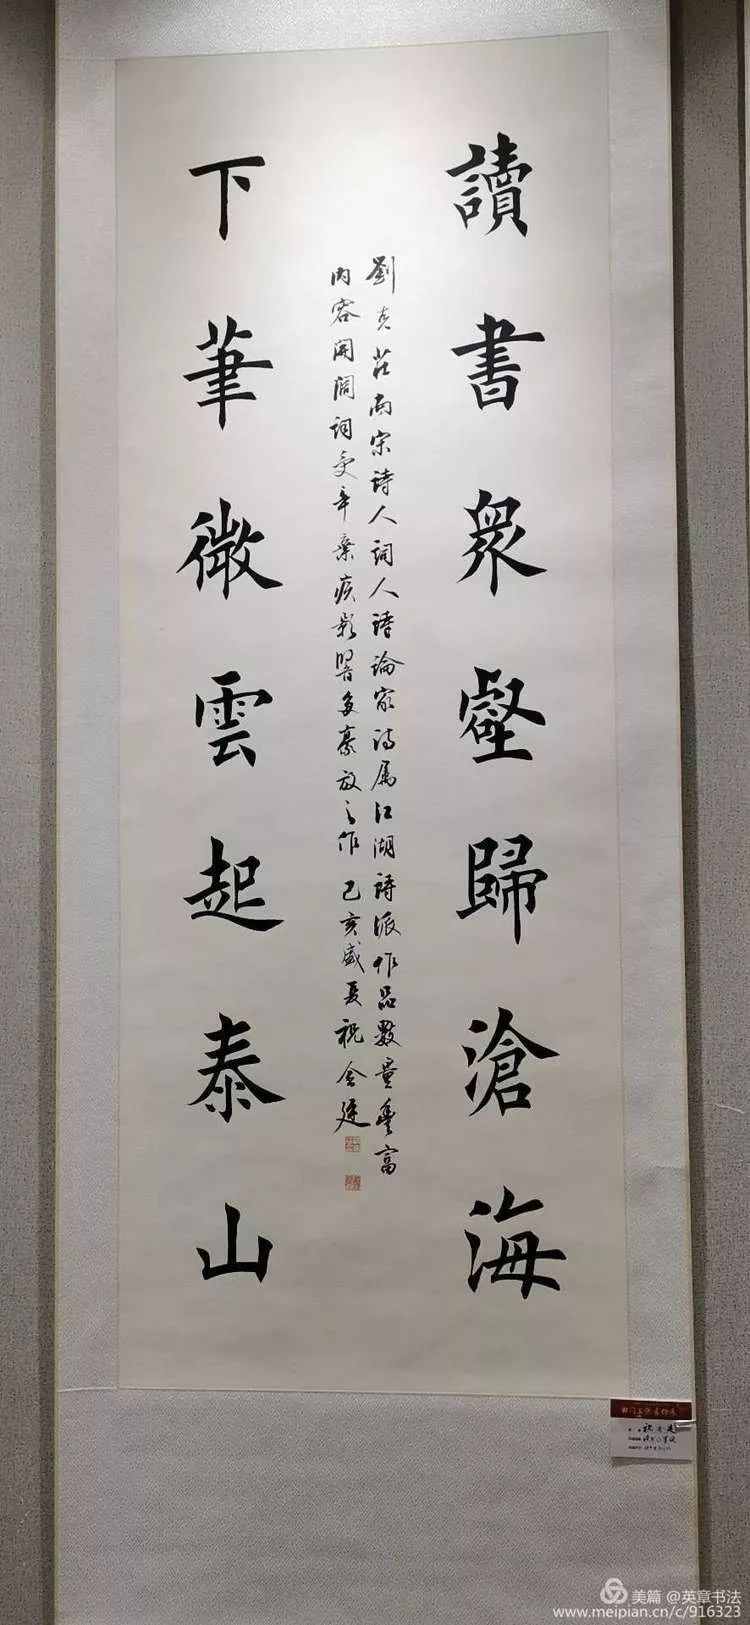 讀書衆壑歸滄海
劉克莊南宋詩人詞人詩論家詩屬江湖詩派作品數量豐富
内容開闊詞受辛棄疾影響多豪放之作己亥盛夏祝金廷
下筆微雲起泰山
美篇 @英章书法
www.meipian.cn/c/916323